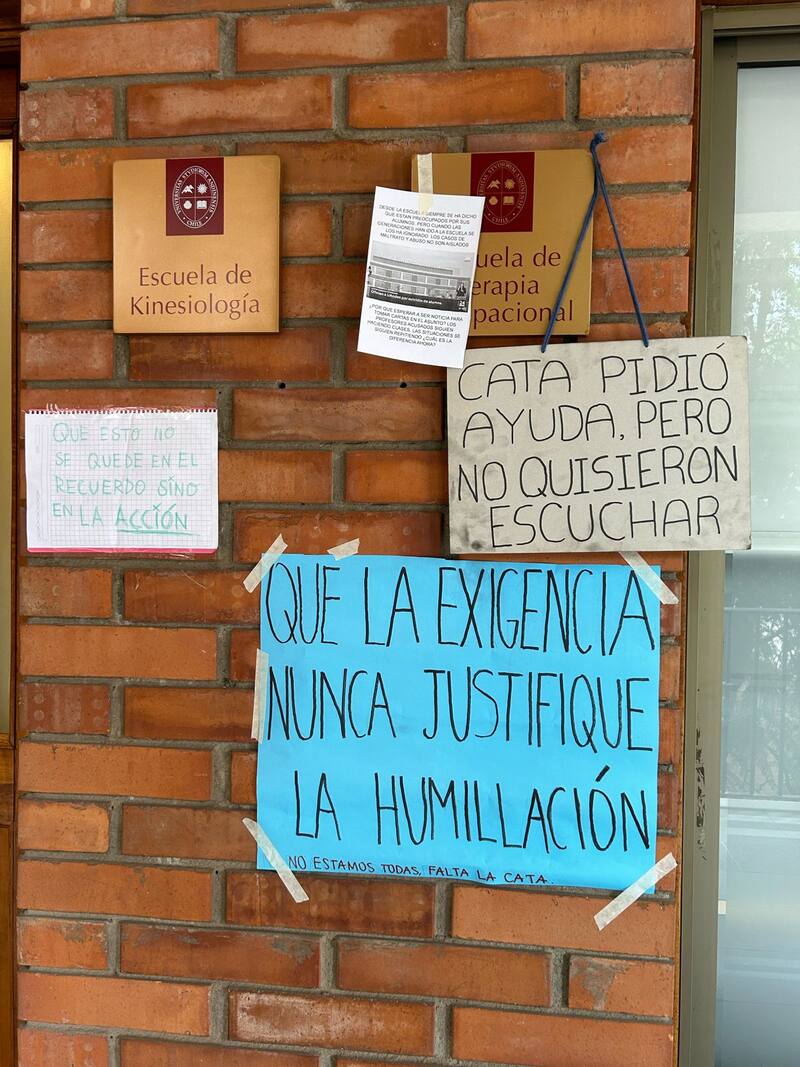 UNIVERSITAS STVDIORVM ANDINENSIS
CHILE
Escuela de
Kinesiología
uela de
erapia
pacional
DESDE LA ESCUELA SIEMPRE SE HA DICHO
QUE ESTAN PREOCUPADOS POR SUS
ALUMNOS. PERO CUANDO LAS
GENERACIONES HAN IDO A LA ESCUELA SE
LOS HA IGNORADO. LOS CASOS DE
MALTRATO Y ABUSO NO SON AISLADOS
¿POR QUE ESPERAR A SER NOTICIA PARA
TOMAR CARTAS EN EL ASUNTO? LOS
PROFESORES ACUSADOS SIGUEN
HACIENDO CLASES, LAS SITUACIONES SE
SIGUEN REPITIENDO ¿CUÁL ES LA
DIFERENCIA AHORA?
CATA PIDIÓ
AYUDA, PERO
NO QUISIERON
ESCUCHAR
QUE ESTO NO
SE QUEDE EN EL
RECUERDO SINO
EN LA ACCIÓN
QUE LA EXIGENCIA
NUNCA JUSTIFIQUE
LA HUMILLACIÓN
NO ESTAMOS TODAS, FALTA LA CATA.